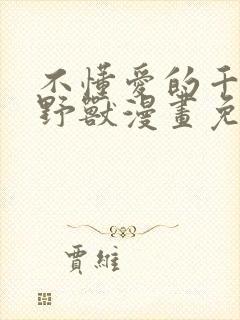 不懂愛的千
野獸漫畫免
賈維